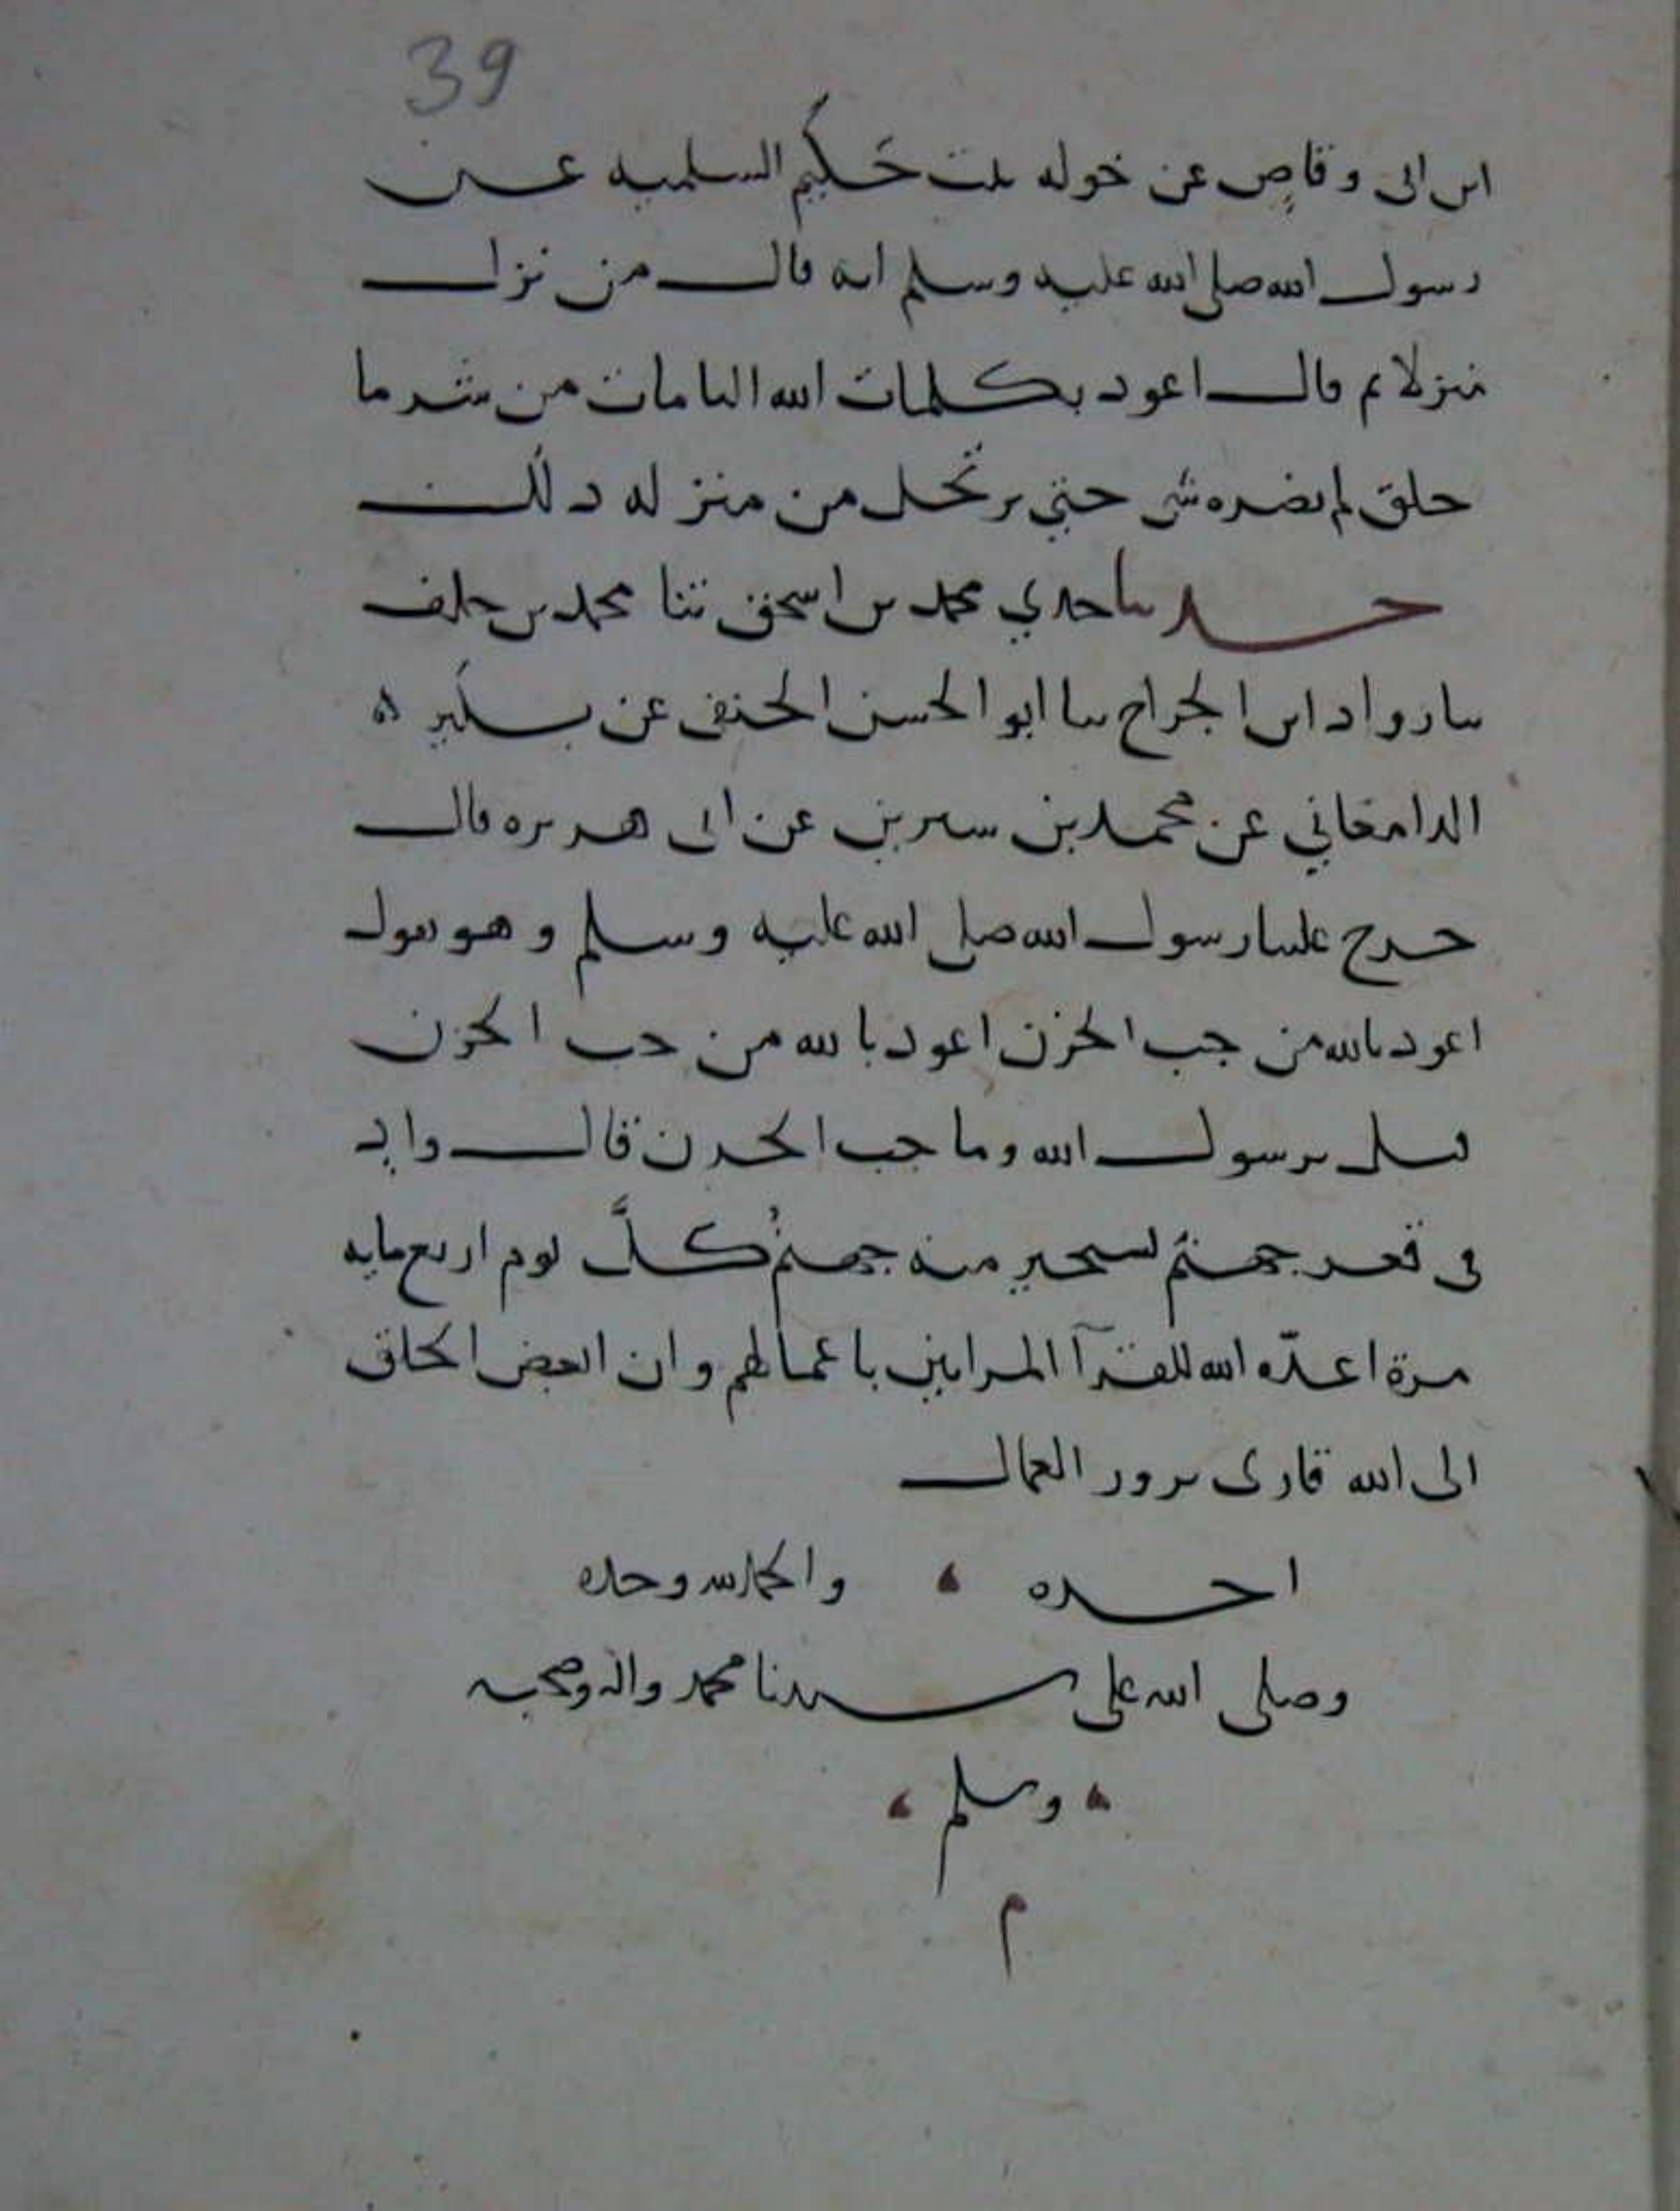 39
ابن ابي وقاص عن خوله بنت حَكيم السلميه عن
رسول الله صلى الله عليه وسلم انه قال من نزل
منزلا ثم قال اعوذ بكلمات الله التامات من شر ما
خلق لم يضره شي حتي يرتحل من منزله ذلك
حدثنا جدي محمد بن اسحق ثنا محمد بن خلف
ثنا رواد ابن الجراح ثنا ابو الحسن الحنفي عن بكير
الدامغاني عن محمد بن سيرين عن ابي هريره قال
خرج علينا رسول الله صلى الله عليه وسلم وهو يقول
اعوذ بالله من جب الحزن اعوذ بالله من جب الحزن
قيل يرسول الله وما جب الحزن قال واد
في قعر جهنم تستجير منه جهنم كلَّ يوم اربع مايه
مرة اعدّه الله للقرآ المرايين باعمالهم وان ابغض الخلق
الى الله قارى يزور العمال
اخره والحمد لله وحده
وصلى الله على سيدنا محمد واله وصحبه
وسلم
م